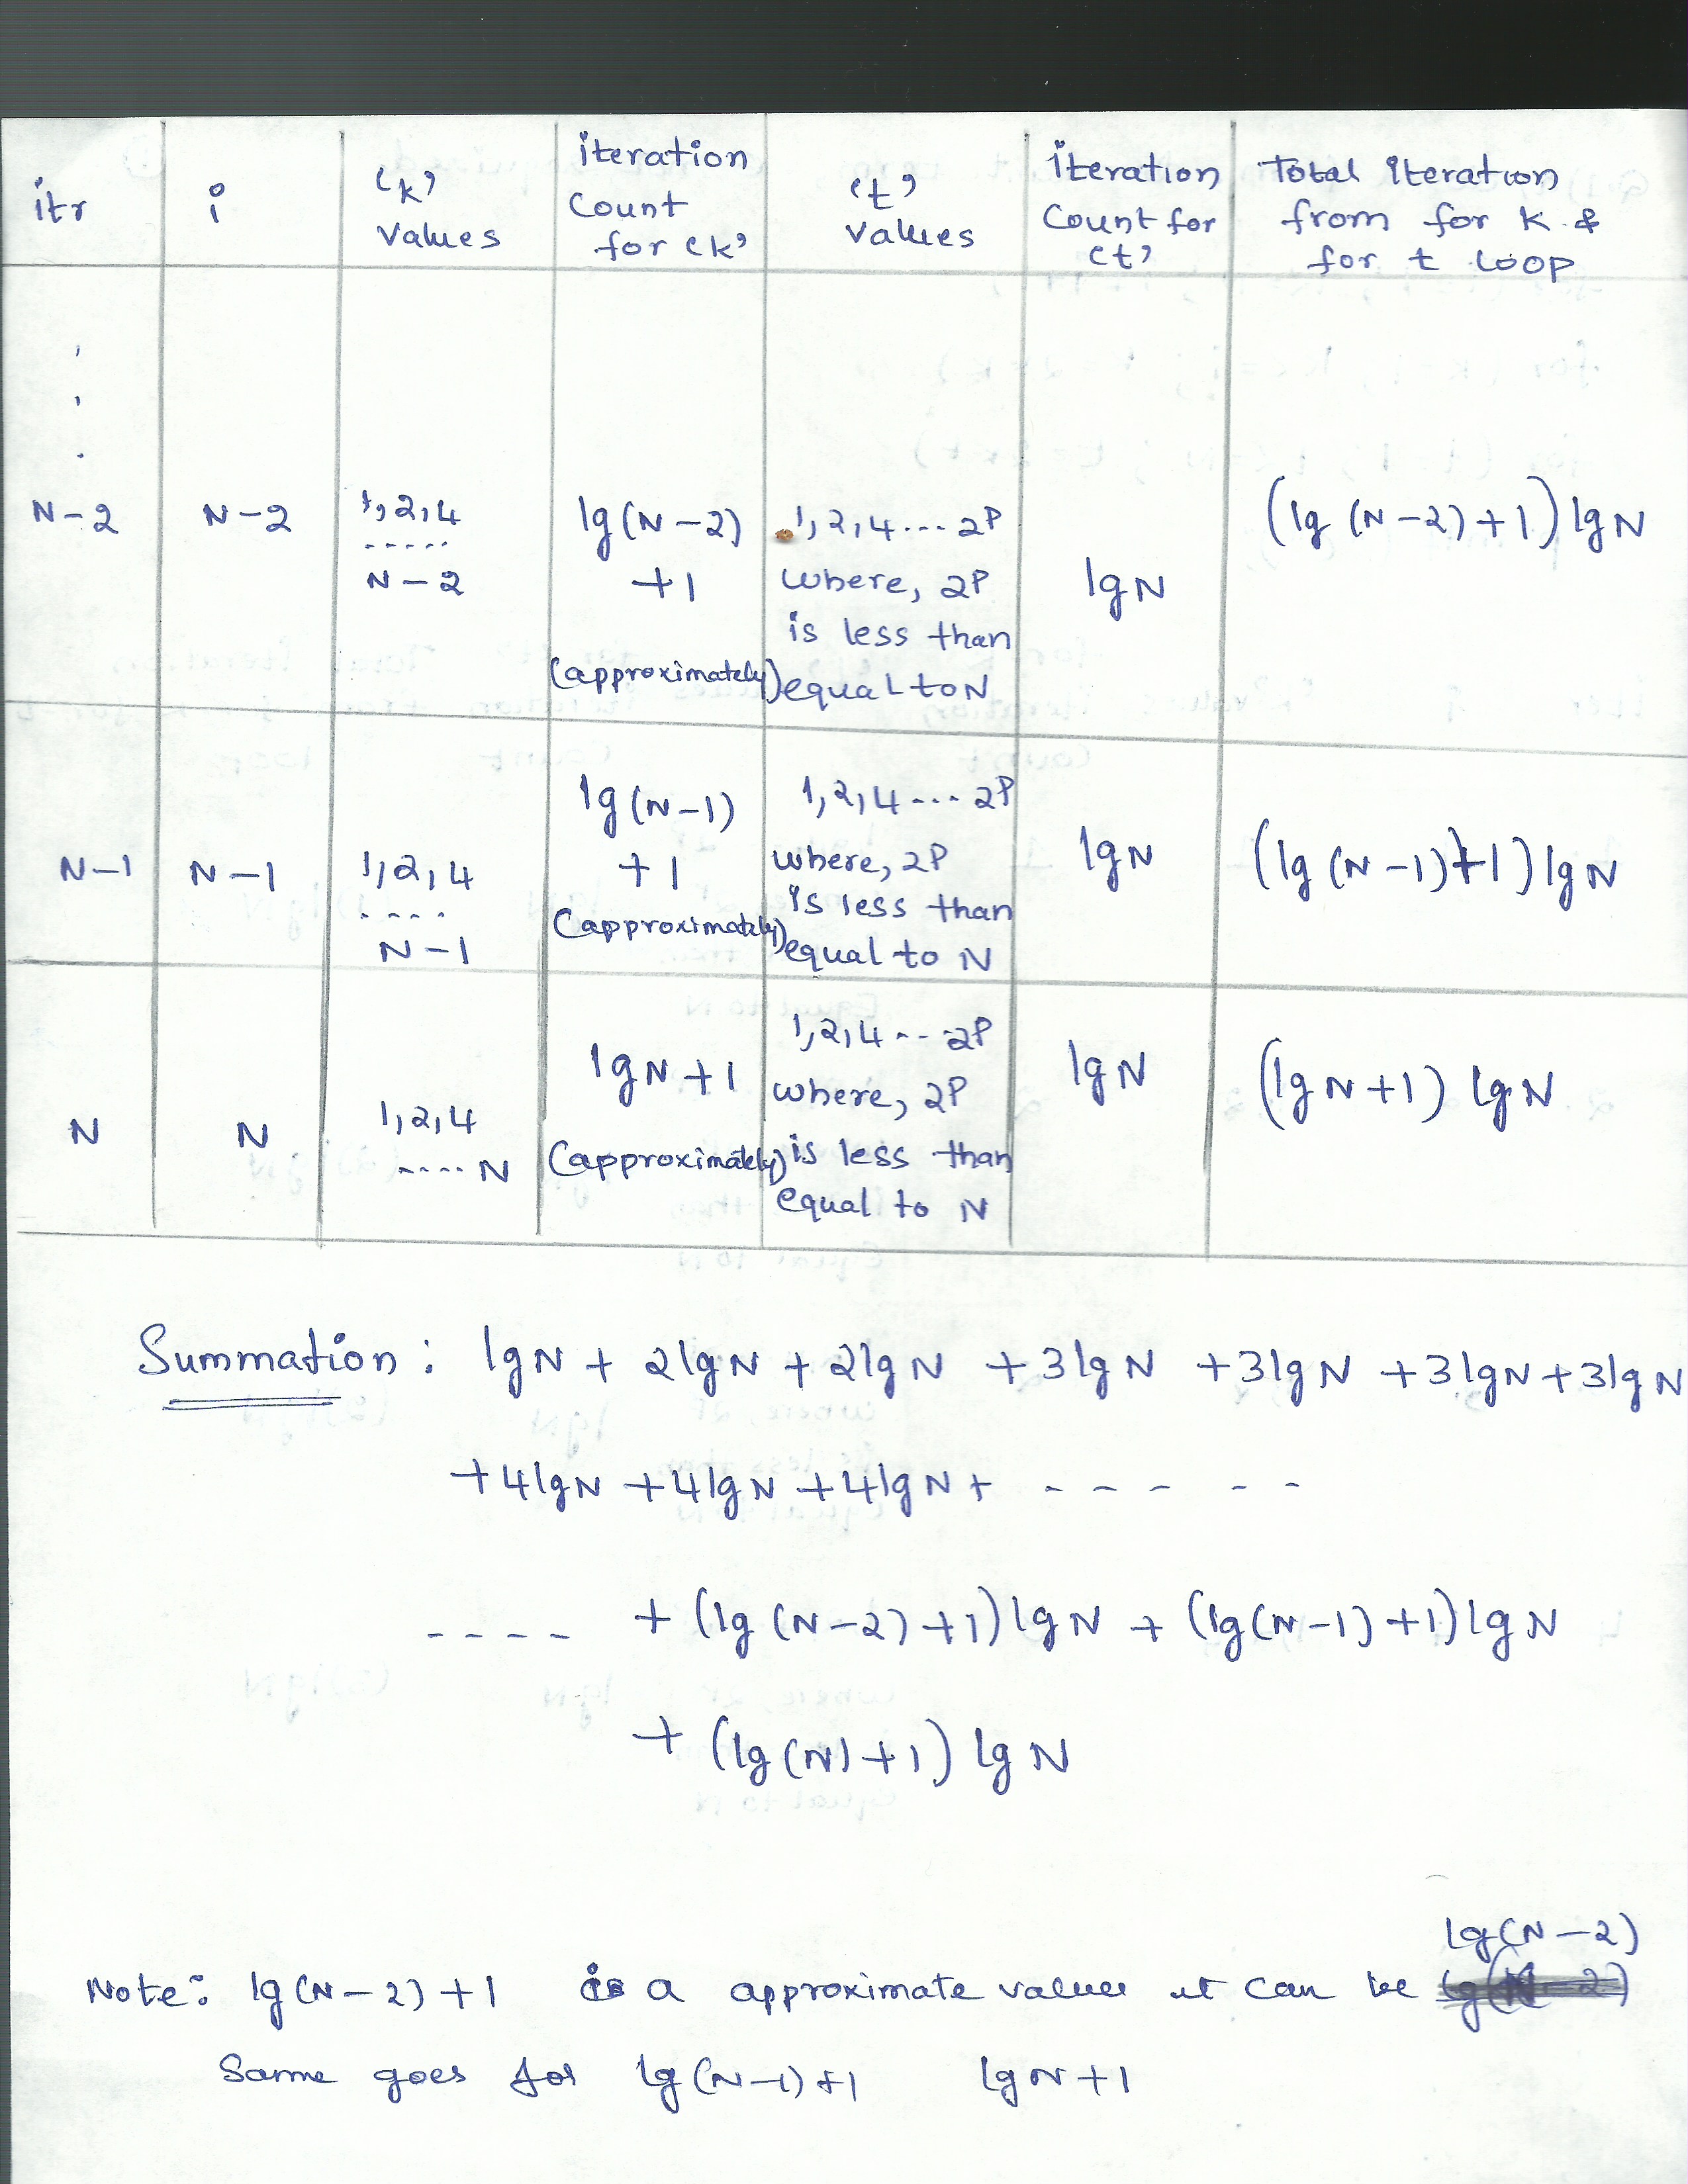 itr i 'k' values iteration count for 'k' 't' values iteration count for 't' Total iteration from for k & for t loop
N-2 N-2 1,2,4 ----- N-2 lg(N-2) +1 (approximately) 1,2,4...2P where, 2P is less than equal to N lgN (lg(N-2)+1)lgN
N-1 N-1 1,2,4 ---- N-1 lg(N-1) +1 (approximately) 1,2,4...2P where, 2P is less than equal to N lgN (lg(N-1)+1)lgN
N N 1,2,4 ----N lgN+1 (approximately) 1,2,4--2P where, 2P is less than equal to N lgN (lgN+1) lgN
Summation: lgN + 2lgN + 2lgN +3lgN +3lgN +3lgN+3lgN
+4lgN +4lgN +4lgN+ - - - - -
---- + (lg(N-2)+1)lgN + (lg(N-1)+1)lgN
+ (lg(N)+1) lgN
lg(N-2)
Note: lg(N-2)+1 is a approximate value it can be
Same goes for lg(N-1)+1 lgN+1